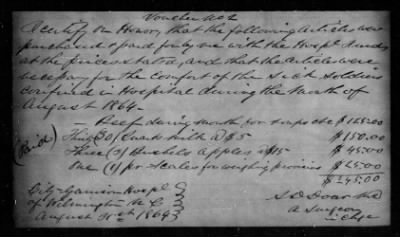 Voucher No 2
I certify on Honor, that the following Articles were
purchased & paid for by me with the Hospl Funds
at the prices stated, and that the Articles were
necessary for the Comfort of the sick soldiers
confined in Hospital during the Month of
August 1864.
— Beef during month for soups &c $125.00
Thirty (30) Quarts milk @ $5 $150.00
Three (3) Bushels Apples @ $15 $45.00
One (1) pr Scales for weighing provisions $25.00
(Paid)
$345.00
City Garrison Hospl
of Wilmington N C
August 31st 1864
a Surgeon
in Chge